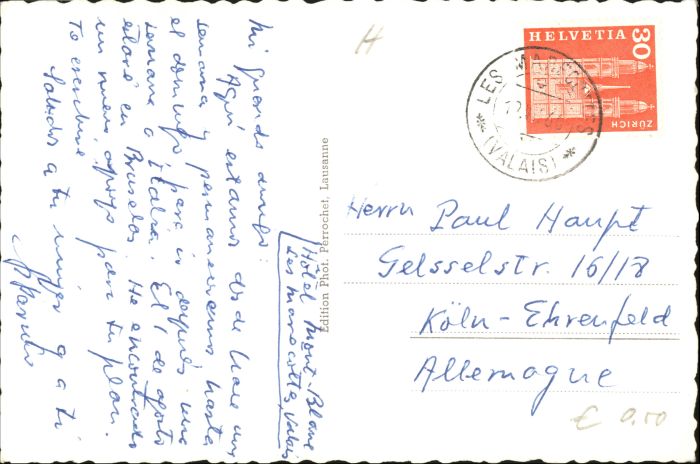 Mi querido amigo:
Aquí estamos desde hace una
semana y permaneceremos hasta
el domingo, para ir después una
semana a Italia. El 1 de agosto
estaré en Bruselas. He encontrado
un nuevo apoyo para tu plan.
Te escribiré
Saludos a tu mujer y a ti
Hôtel Mont-Blanc
Les Marecottes, Valais
Edition Phot. Perrochet, Lausanne
H
HELVETIA 30
ZÜRICH
LES MARECOTTES
(VALAIS)
Herrn Paul Haupt
Gelsselstr. 16/18
Köln-Ehrenfeld
Allemagne
€ 0,50